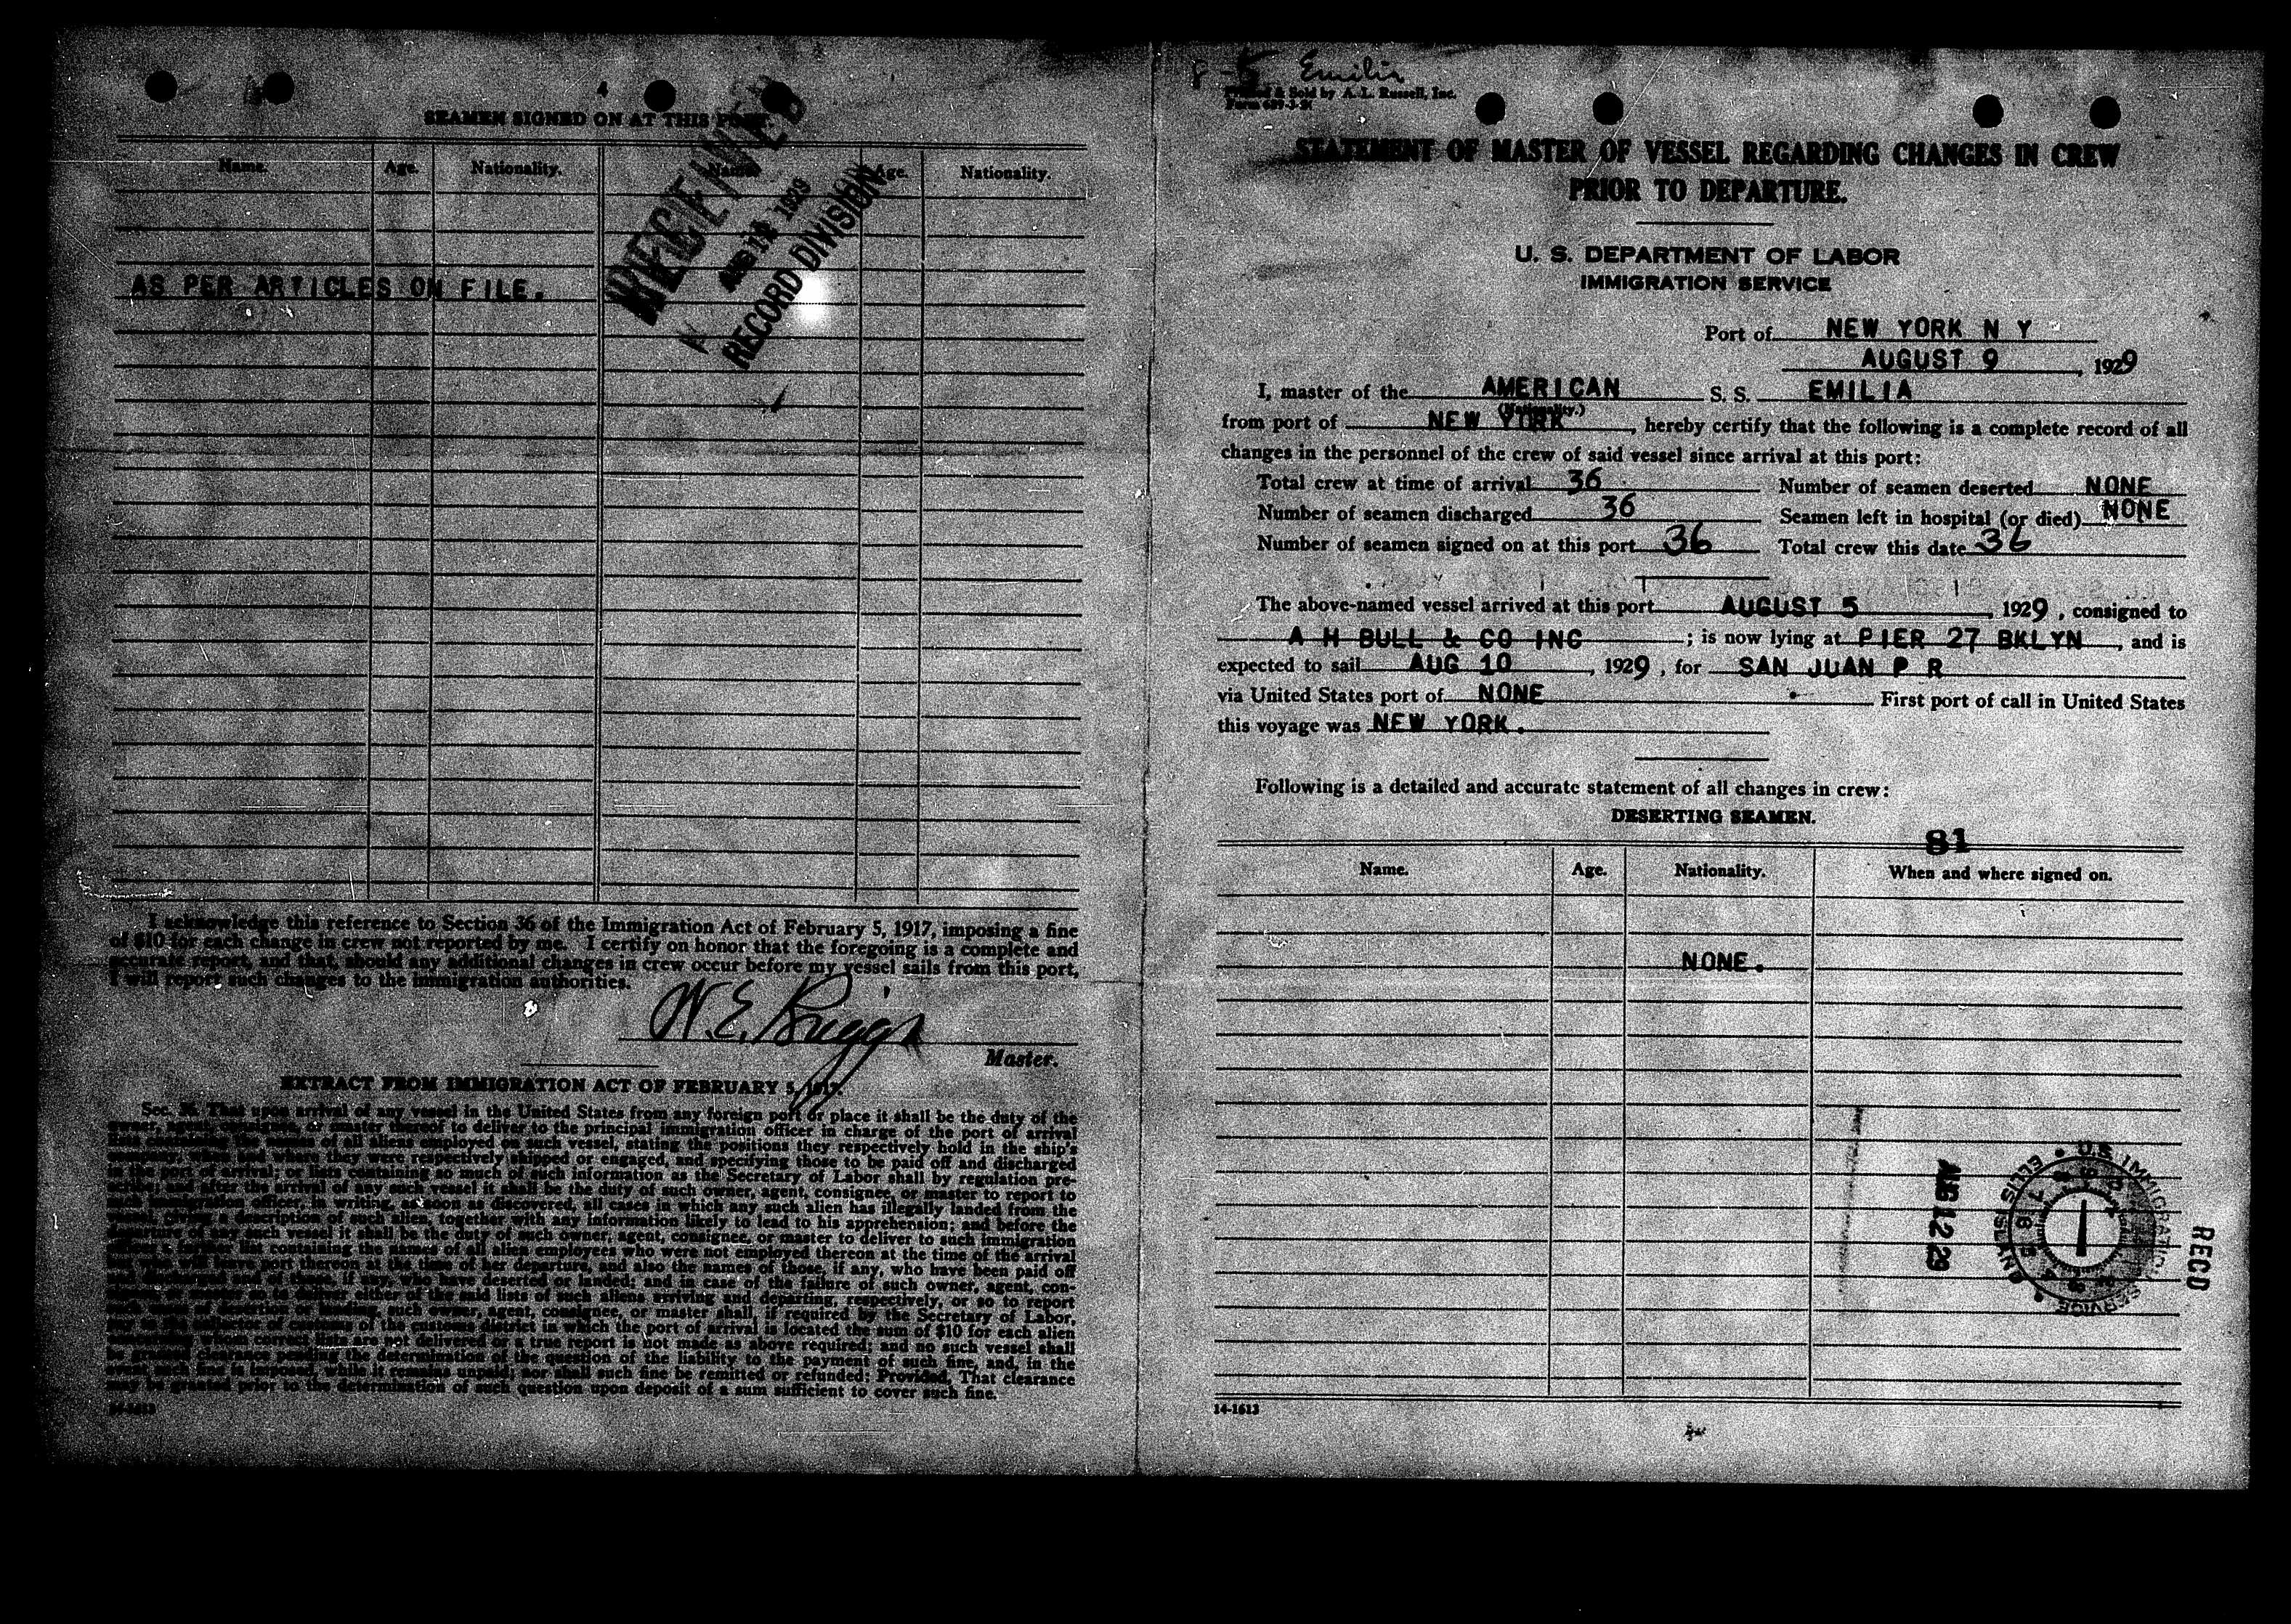 4
SEAMEN SIGNED ON AT THIS PORT.
Name. Age. Nationality. Name. Age. Nationality.
RECEIVED
1929
RECORD DIVISION
AS PER ARTICLES ON FILE.
I acknowledge this reference to Section 36 of the Immigration Act of February 5, 1917, imposing a fine
of $10 for each change in crew not reported by me. I certify on honor that the foregoing is a complete and
accurate report, and that, should any additional changes in crew occur before my vessel sails from this port,
I will report such changes to the immigration authorities.
W. E. Briggs
Master.
EXTRACT FROM IMMIGRATION ACT OF FEBRUARY 5, 1917.
Sec. 36. That upon arrival of any vessel in the United States from any foreign port or place it shall be the duty of the
owner, agent, consignee, or master thereof to deliver to the principal immigration officer in charge of the port of arrival
lists containing the names of all aliens employed on such vessel, stating the positions they respectively hold in the ship's
company, when and where they were respectively shipped or engaged, and specifying those to be paid off and discharged
in the port of arrival; or lists containing so much of such information as the Secretary of Labor shall by regulation pre-
scribe; and after the arrival of any such vessel it shall be the duty of such owner, agent, consignee, or master to report to
such immigration officer, in writing, as soon as discovered, all cases in which any such alien has illegally landed from the
vessel, giving a description of such alien, together with any information likely to lead to his apprehension; and before the
departure of any such vessel it shall be the duty of such owner, agent, consignee, or master to deliver to such immigration
officer a further list containing the names of all alien employees who were not employed thereon at the time of the arrival
but who will leave port thereon at the time of her departure, and also the names of those, if any, who have been paid off
and discharged, and of those, if any, who have deserted or landed; and in case of the failure of such owner, agent, con-
signee, or master so to deliver either of the said lists of such aliens arriving and departing, respectively, or so to report
such cases of desertion or landing, such owner, agent, consignee, or master shall, if required by the Secretary of Labor,
pay to the collector of customs of the customs district in which the port of arrival is located the sum of $10 for each alien
concerning whom correct lists are not delivered or a true report is not made as above required; and no such vessel shall
be granted clearance pending the determination of the question of the liability to the payment of such fine, and, in the
event such fine is imposed, while it remains unpaid; nor shall such fine be remitted or refunded: Provided, That clearance
may be granted prior to the determination of such question upon deposit of a sum sufficient to cover such fine.
14-1613
8-5 Emilia
Printed & Sold by A. L. Russell, Inc.
STATEMENT OF MASTER OF VESSEL REGARDING CHANGES IN CREW
PRIOR TO DEPARTURE.
U. S. DEPARTMENT OF LABOR
IMMIGRATION SERVICE
Port of NEW YORK N Y
AUGUST 9, 1929
I, master of the AMERICAN S. S. EMILIA
(Nationality.)
from port of NEW YORK, hereby certify that the following is a complete record of all
changes in the personnel of the crew of said vessel since arrival at this port:
Total crew at time of arrival 36 Number of seamen deserted NONE
Number of seamen discharged 36 Seamen left in hospital (or died) NONE
Number of seamen signed on at this port 36 Total crew this date 36
The above-named vessel arrived at this port AUGUST 5, 1929, consigned to
A H BULL & CO INC; is now lying at PIER 27 BKLYN, and is
expected to sail AUG 10, 1929, for SAN JUAN P R
via United States port of NONE First port of call in United States
this voyage was NEW YORK.
Following is a detailed and accurate statement of all changes in crew:
DESERTING SEAMEN.
81
Name. Age. Nationality. When and where signed on.
NONE.
U.S. IMMIGRATION SERVICE
ELLIS ISLAND
AUG 12 29
RECD
14-1613